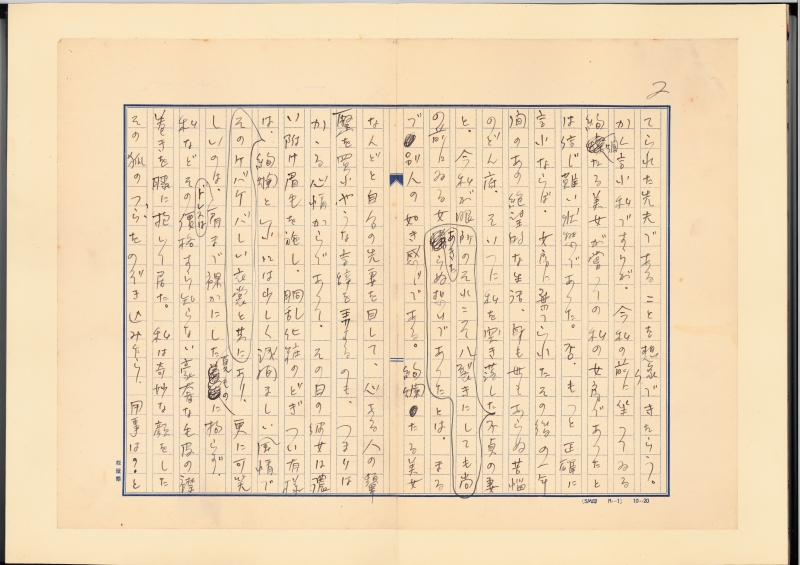 2
てられた先夫であることを想像できたらう。
かく言ふ私ですらが、今私の前に坐つてゐる
絢爛たる美女が嘗つての私の女房であつたと
は信じ難い状態であつた。否、もつと正確に
言ふならば、女房に棄てられたその後の一年
間のあの絶望的な生活、身も世もあらぬ苦悩
のどん底、そいつに私を突き落した不貞の妻
と、今私が眼前のそれこそ八裂きにしても尚
あきたらぬ想ひであつたとは、まる
の前にゐる女
で別人の如き感じである。絢爛たる美女
なんどと自分の先妻を目して、心ある人の顰
蹙を買ふやうな言辞を弄するのも、つまりは
かゝる心情からであつて、その日の彼女は濃
い附け眉毛を施し、胴乱化粧のどぎつい有様
は、絢爛と いふには少しく浅猿ましい風情で
そのケバケバしい衣裳と共にあり、更に可笑
しいのは、肩まで裸かにした
ドレスは 夏もの に拘らず、
私などその價格すら知らない豪奢な毛皮の襟
巻きを膝に抱いて居た。私は奇妙な顔をした
その狐のつらをのぞき込みたり、用事は?と
(SM印 H-1) 10-20